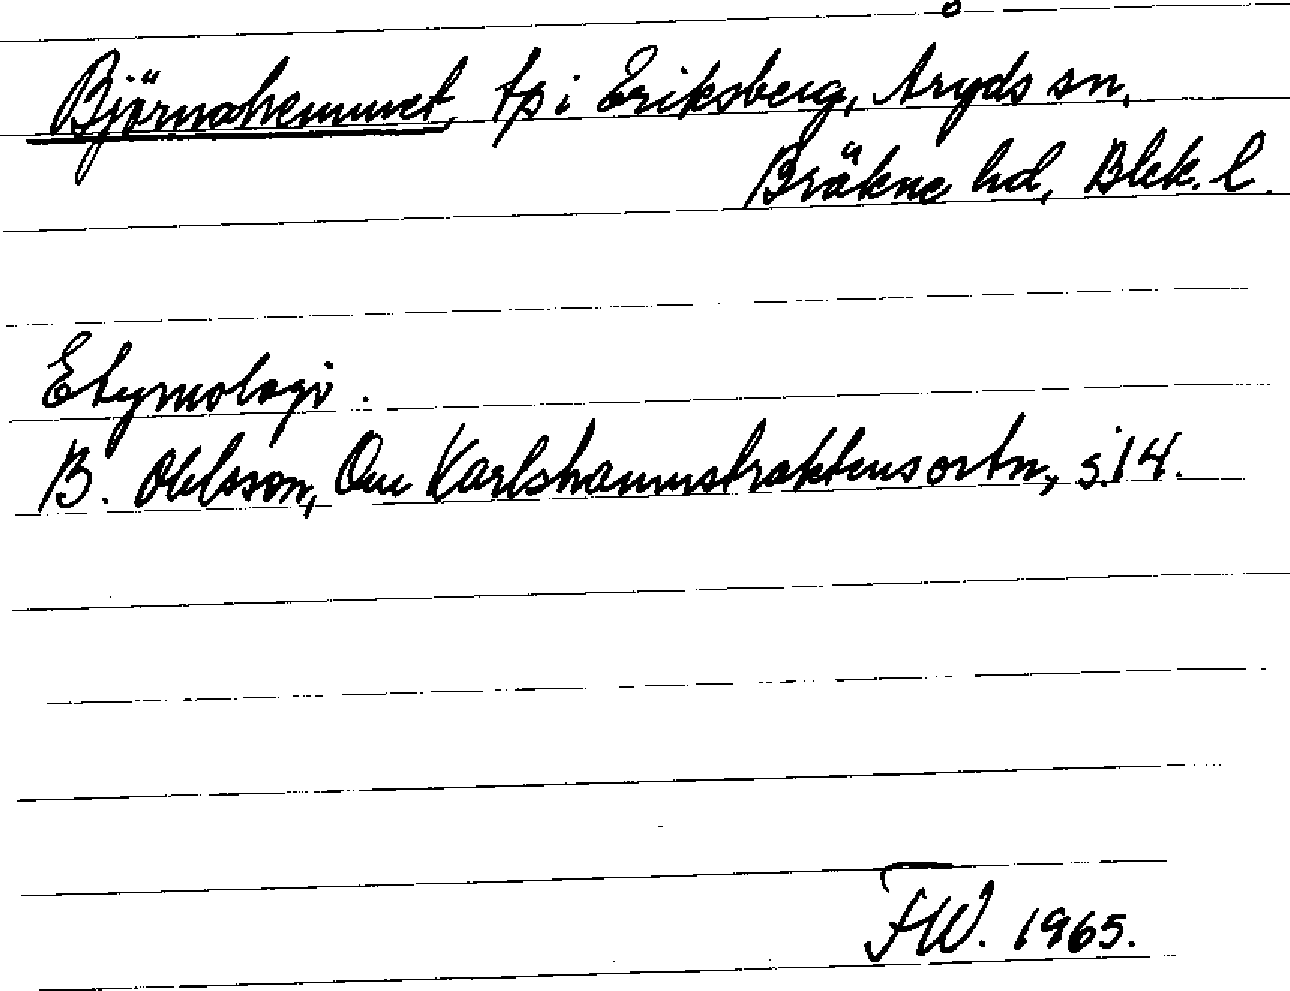 Björnahemmet, tp i Eriksberg, Åryds sn,
Bräkne hd, Blek. l.
Etymologi.
B. Ohlsson, Om Karlshamnstraktens ortn, s. 14.
FW. 1965.